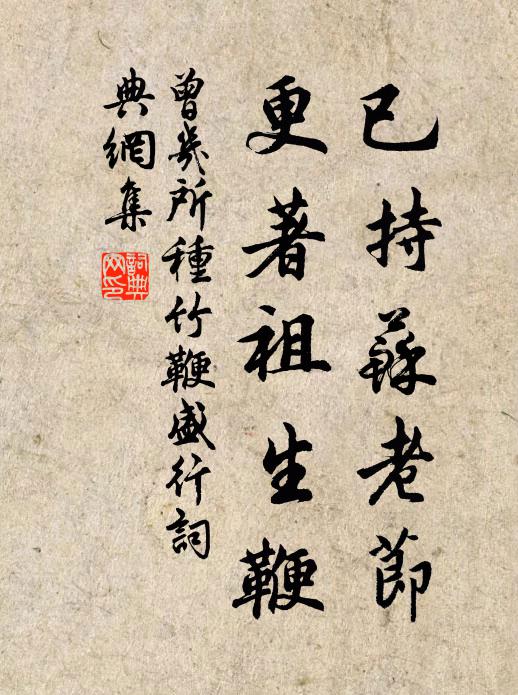 已持蘇老節
更著祖生鞭
曾幾所種竹鞭盛行詞
典網集
詞典
网印